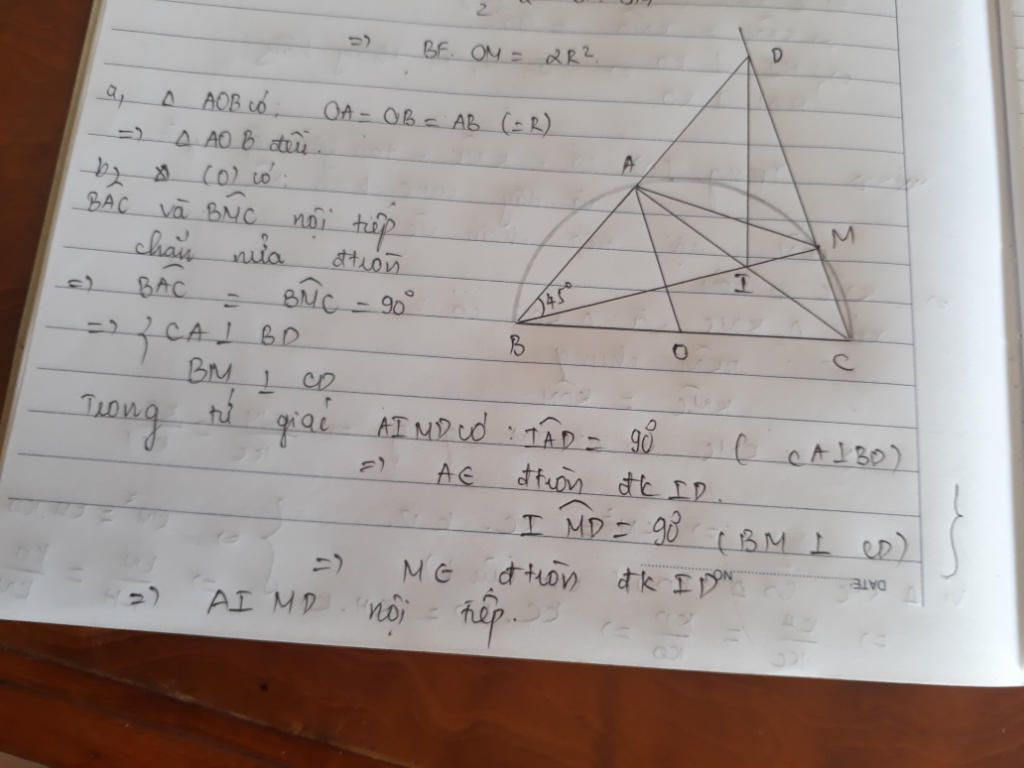 => BE. OM = 2R².
a, △ AOB có: OA = OB = AB (= R)
=> △ AOB đều.
b, (O) có:
BAC và BMC nội tiếp
chắn nửa đtròn
=> BAC = BMC = 90°
=> } CA ⊥ BD
BM ⊥ CD
Trong tứ giác AIMD có: IAD = 90° ( CA ⊥ BD)
=> A ∈ đtròn đk ID.
IMD = 90° (BM ⊥ CD)
=> M ∈ đtròn đk ID
=> AIMD nội tiếp.
D
A
M
I
45°
B
O
C
NO
DATE